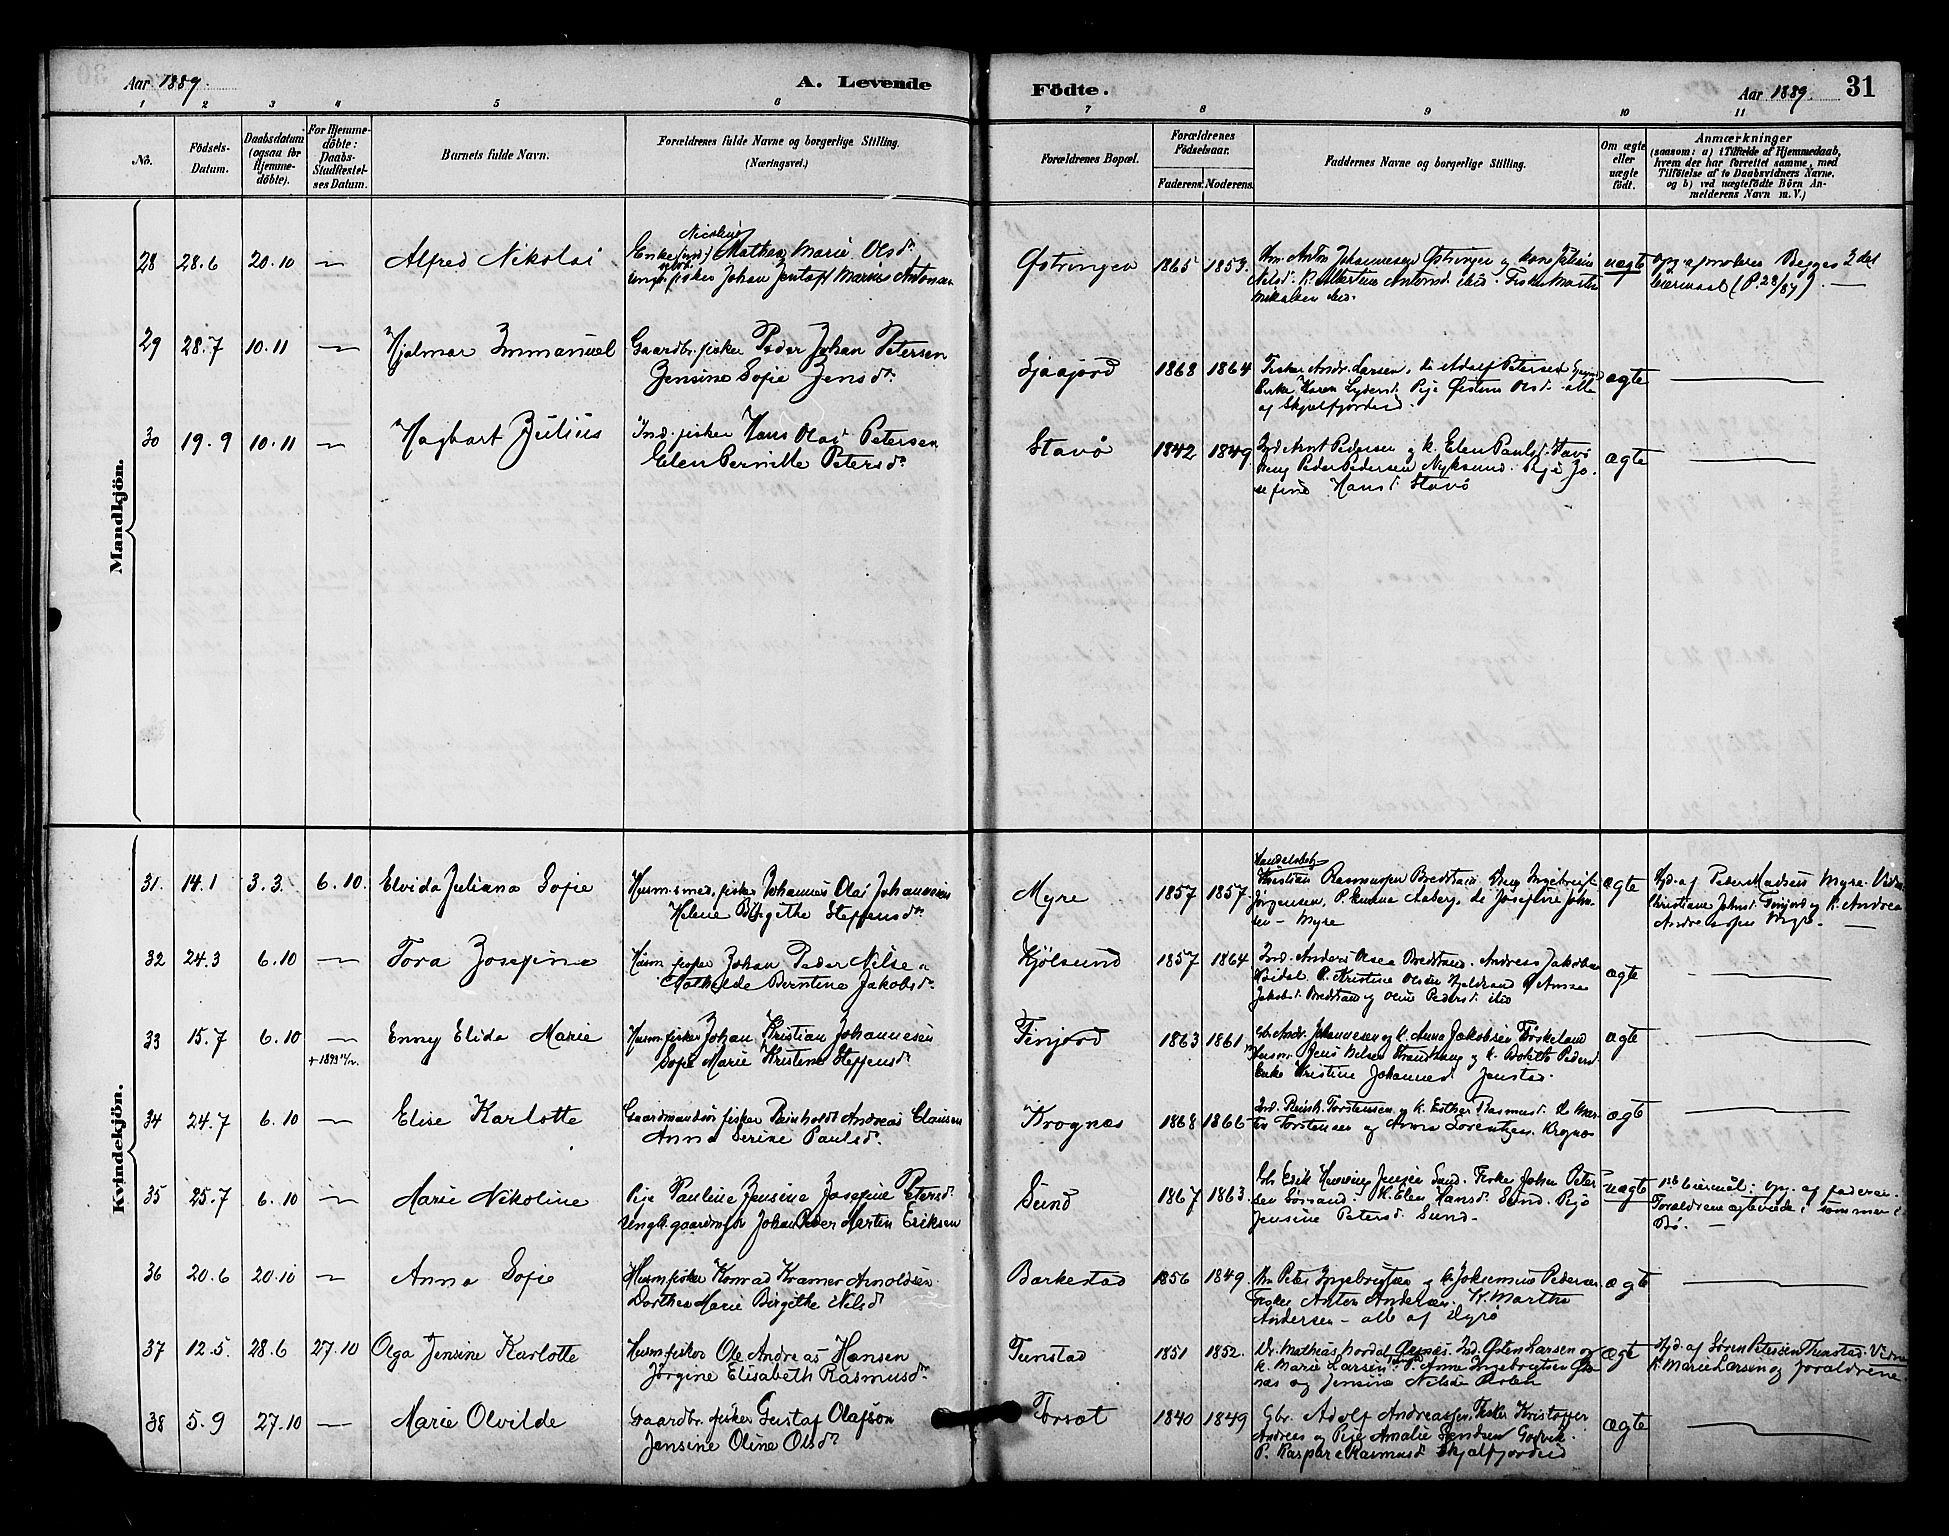 Aar 1889.
A. Levende
Födte.
Aar 1889.
31
1 2 3 4 5 6 7 8 9 10 11
No.
Födsels-
Datum.
Daabsdatum
(ogsaa for
Hjemme-
döbte).
For Hjemme-
döbte:
Daabs-
Stadfæstel-
ses Datum.
Barnets fulde Navn.
Forældrenes fulde Navne og borgerlige Stilling.
(Næringsvei.)
Forældrenes Bopæl.
Forældrenes
Födselsaar.
Faderens. Moderens.
Faddernes Navne og borgerlige Stilling.
Om ægte
eller
uægte
födt.
Anmærkninger
(saasom: a) i Tilfælde af Hjemmedaab,
hvem der har forrettet samme, med
Tilföielse af to Daabsvidners Navne.
og b) ved uægtefödte Börn An-
melderens Navn m. V.)
Mandkjön.
28 28.6 20.10 — Alfred Nikolai
Enke Mathea Marie Olsd.
fisker Johan Jentoft Marius Antonsen
Östringen 1865 1853.
Anton Johannesen Östringen
Nilsd. K. Albertine Antonsd. ibid. Fisker Morten
Mikalsen ibid.
uægte
Begges 2det
Leiermaal (P. 28/87). —
29 28.7 10.11 — Hjalmar Immanuel
Gaardbr. fisker Peder Johan Petersen
Jensine Sofie Jensdr.
1868 1864
Fisker Andr. Larsen, do Adolf Petersen
Enke Karen Pige Östine Olsd. alle
af Skjelfjorden.
ægte
30 19.9 10.11 — Hagbart Julius
Ind. fisker Hans Olai Petersen
Elen Pernille Petersdr.
Stavö 1842 1849.
Ind. Arnt Pedersen og K. Elen Paulsd. Stavö
Ung Peder Pedersen Nyksund. Pige Jo-
sefine Hansd. Stavö
ægte
Kvindekjön.
31. 14.1 3.3. 6.10. Elvida Juliana Sofie
Husm. smed, fisker Johannes Olai Johannesen
Helene Birgithe Steffensdr.
Myre 1857 1857.
Handelsbetj.
Kristian Rasmussen Bredstrand, Ung Ingebrigt
Jörgensen, P. Aaberg, do Josefine John-
sen - Myre
ægte
Hjd. af Peder Madsen Myre. Vidn.
Christiane Johnsd. Finjord og K. Andrea
Andreassen Myre. —
32 24.3 6.10 — Tora Josefine
Husm. fisker Johan Peder Nilsen
Mathilde Berntine Jakobsdr.
Kjölsund 1857 1864
Ind. Anders Olsen Bredstrand. Andreas Jakobsen
P. Kristine Olsen
Jakobsd. Bredstrand og Oline Pedersd. ibid
ægte
33 15.7 6.10 — Enny Elida Marie
+ 1893
Husm. fisker Johan Kristian Johannesen
Sofie Marie Kristine Steffensdr.
Finjord 1863 1861
Andr. Johannesen og K. Anna Jakobsen
Husm. Jens Nilsen og K. Bolette Pedersd.
Enke Kristine Johannesd. Jenstad.
ægte
34 24.7 6.10 — Elise Karlotte
Gaardmandssön fisker Reinholdt Andreas Clausen
Anna Serine Paulsdr.
Krognæs 1868 1866
Ind. Torstensen og K. Esther Rasmusd. do Mar-
tin Torstensen og Anna Lorentzen. Krognæs
ægte
35 25.7 6.10 — Marie Nikoline
Pige Pauline Jensine Josefine Petersd.
Ungk. Johan Peder Martin Eriksen
Sund 1867 1863.
Erik Jensen Sund. Fisker Johan Peter-
sen K. Elen Hansd. Sund. Pige
Jensine Petersd. Sund.
uægte
Opg. af faderen.
Forældrene ægteviede i sommer i
Bö. —
36 20.6 20.10 — Anna Sofie
Husm. fisker Konrad Kramer Arnoldsen
Dorthea Marie Birgithe Nilsdr.
Barkestad 1856 1849.
Peter Ingebrigtsen og K. Pedersen
Fisker Anton Andersen. K. Martha
Andersen - alle af Dyrö
ægte
37 12.5. 28.6 27.10 Olga Jensine Karlotte
Husm. fisker Ole Andreas Hansen
Jörgine Elisabeth Rasmusdr.
Tunstad 1851 1852.
Mathias Ind. Östen Larsen og
K. Marie Larsen P. Anne Ingebrigtsen
og Jensine Nilsd.
ægte
Hjd. af Sören Petersen Tunstad. Vidne
K. Marie Larsen og forældrene.
38 5.9 27.10 — Marie Olvilde
Gaardbr. fisker Gustaf Olafson
Jensine Oline Olsdr.
Forsæt 1840 1849
Gbr. Adolf Andreassen, Fisker Kristoffer
Andreas og Pige Amalie
P. Kaspara Rasmusd. Skjelfjorden
ægte